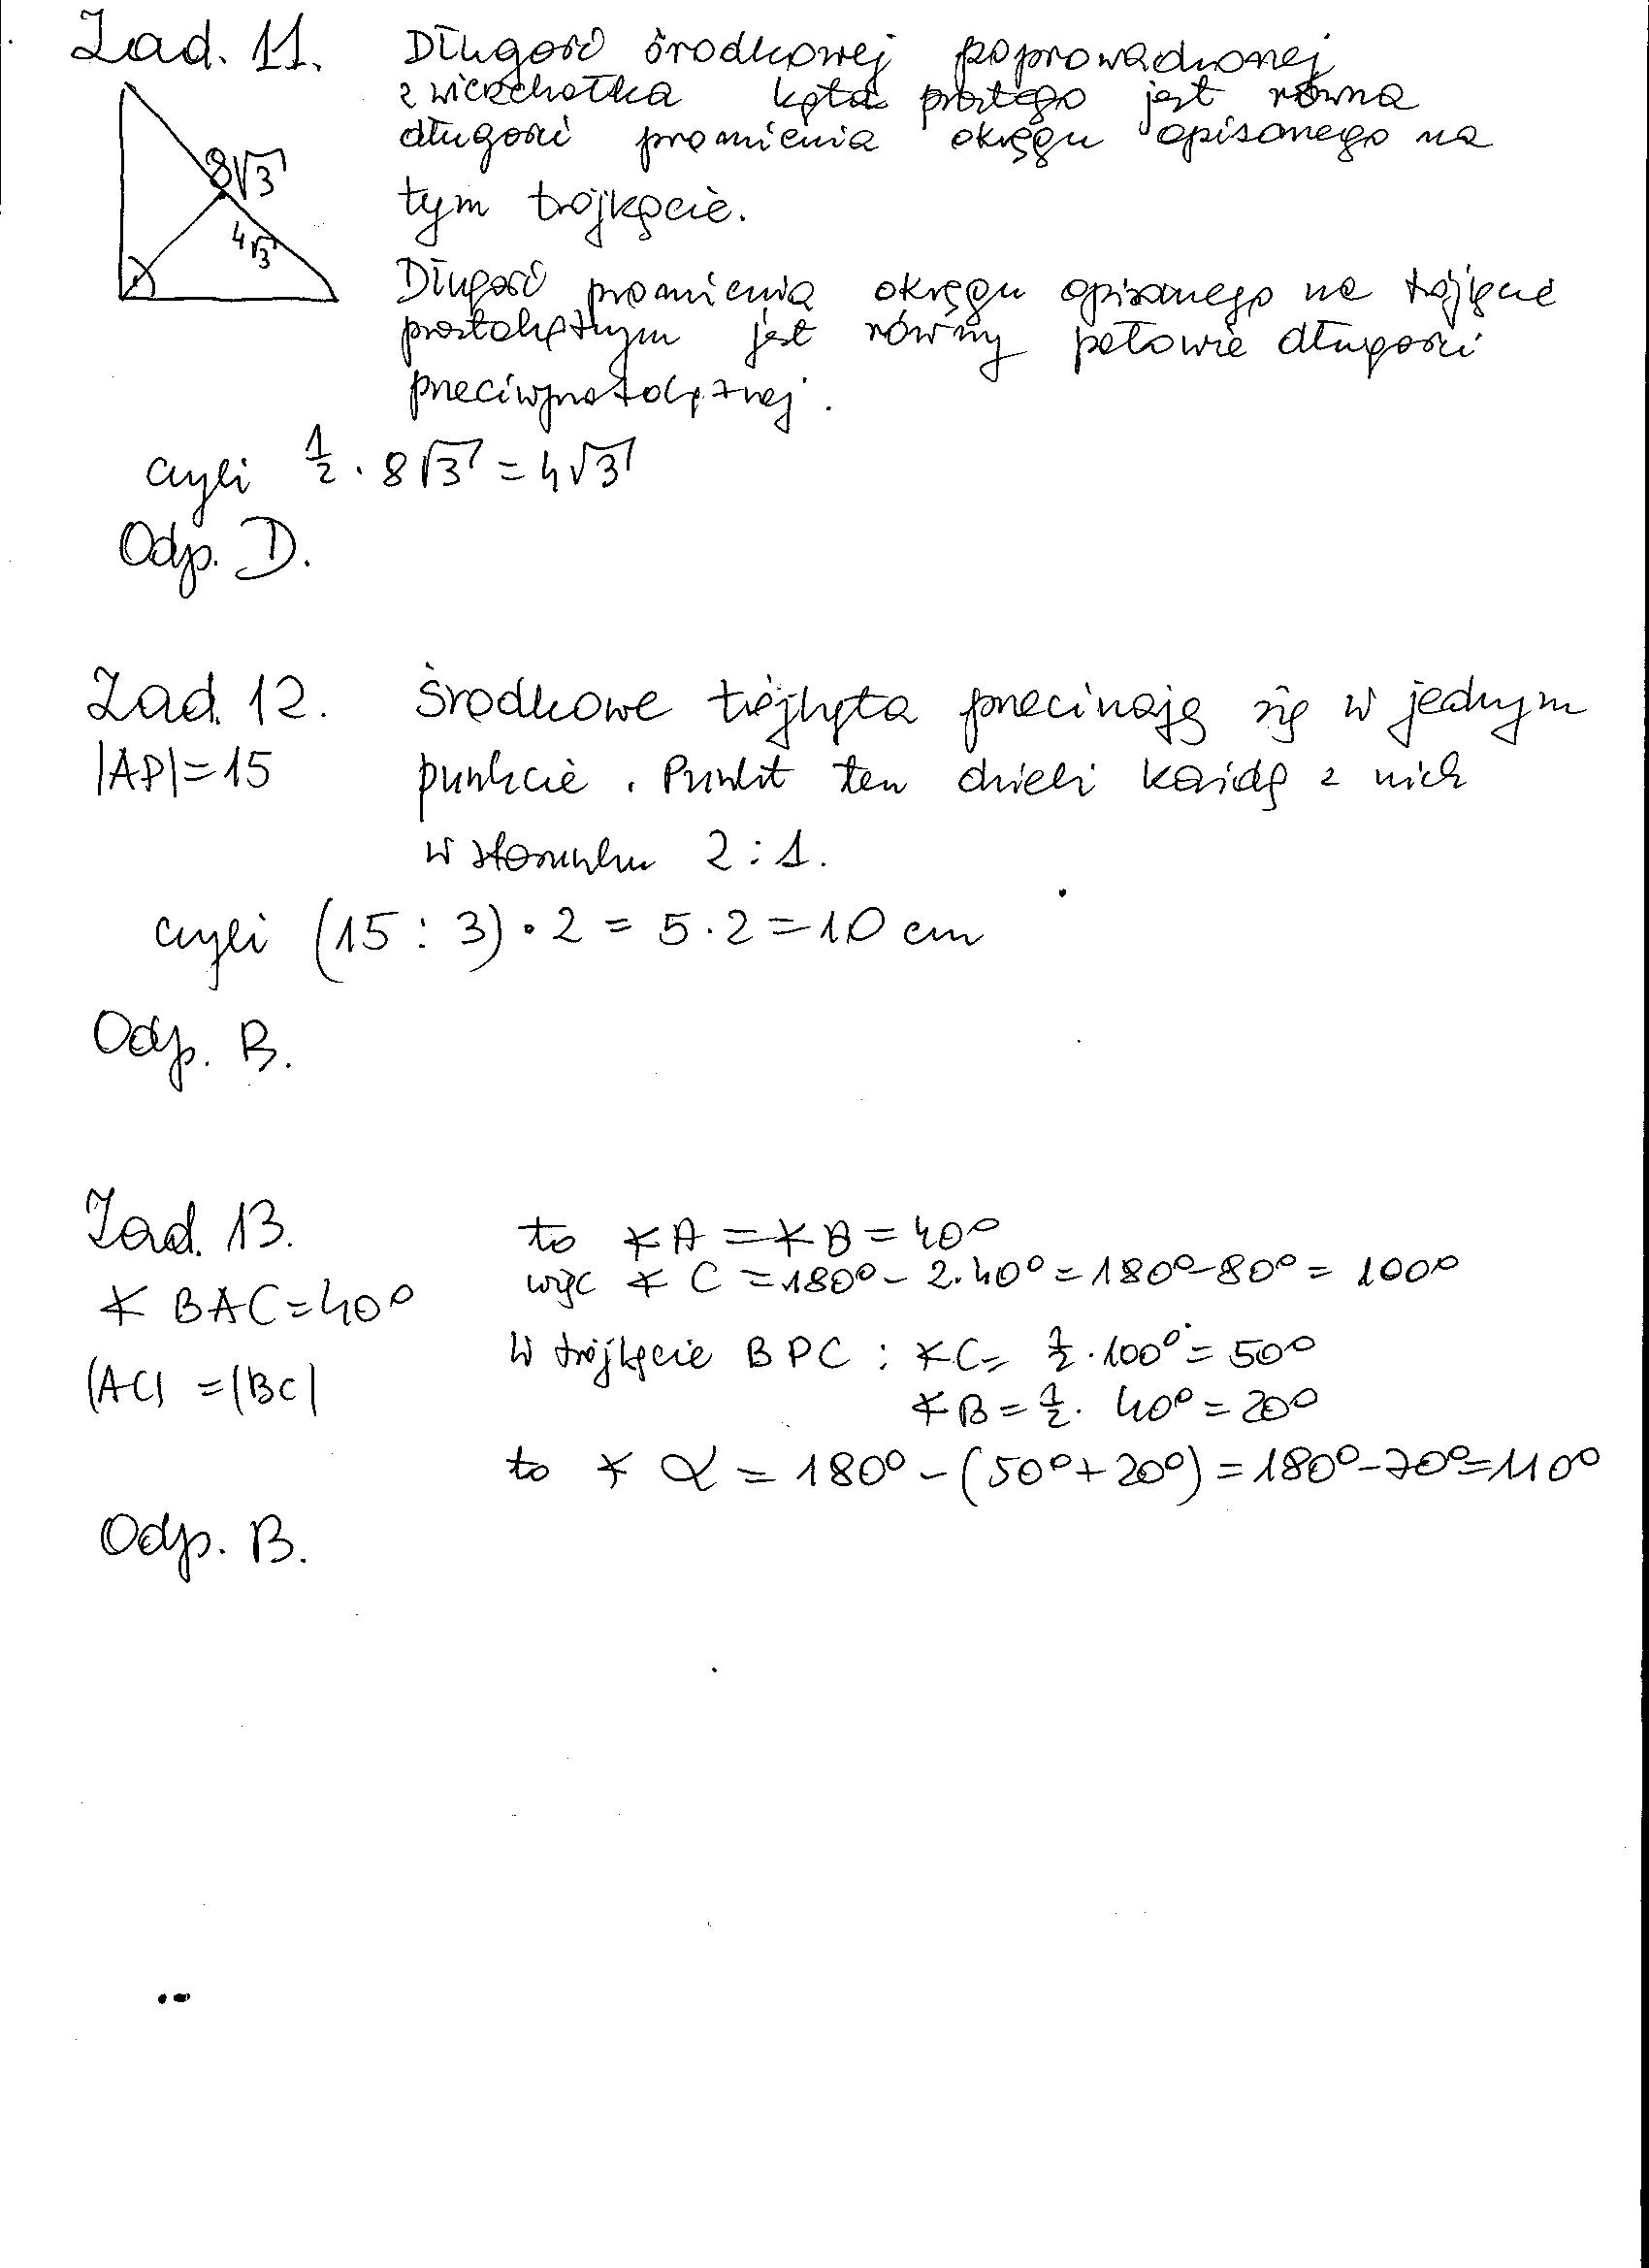 Zad. 11. Długość środkowej poprowadzonej
z wierzchołka kąta prostego jest równa
długości promienia okręgu opisanego na
tym trójkącie.
8√3
4√3
Długość promienia okręgu opisanego na trójkącie
prostokątnym jest równy połowie długości
przeciwprostokątnej.
czyli 1/2 · 8√3 = 4√3
Odp. D.
Zad. 12. Środkowe trójkąta przecinają się w jednym
|AP|=15 punkcie. Punkt ten dzieli każdą z nich
w stosunku 2:1.
czyli (15:3)·2 = 5·2 = 10 cm
Odp. B.
Zad. 13. to ∢A = ∢B = 40°
więc ∢C = 180° - 2·40° = 180° - 80° = 100°
∢BAC = 40°
W trójkącie BPC: ∢C = 1/2 · 100° = 50°
|AC| = |BC|
∢B = 1/2 · 40° = 20°
to ∢α = 180° - (50° + 20°) = 180° - 70° = 110°
Odp. B.